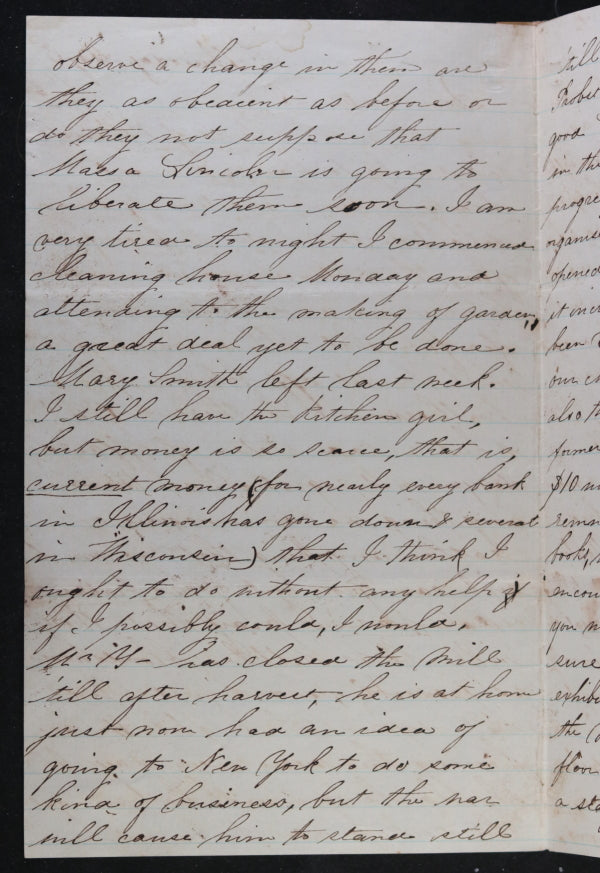 observe a change in them are
they as obedient as before or
do they not suppose that
Massa Lincoln is going to
liberate them soon. I am
very tired to night I commenced
cleaning house Monday and
attending to the making of garden,
a great deal yet to be done.
Mary Smith left last week.
I still have the kitchen girl,
but money is so scarce, that is,
current money (for nearly every bank
in Illinois has gone down & several
in Wisconsin) that I think I
ought to do without any help &
if I possibly could, I would.
Mr H- has closed the mill
'till after harvest, he is at home
just now had an idea of
going to New York to do some
kind of business, but the war
will cause him to stand still
'till
good
in the
progre
organis
opened
been
our ch
also th
former
$10
book,
encou
you
sure
exhibi
the
floor
a sta